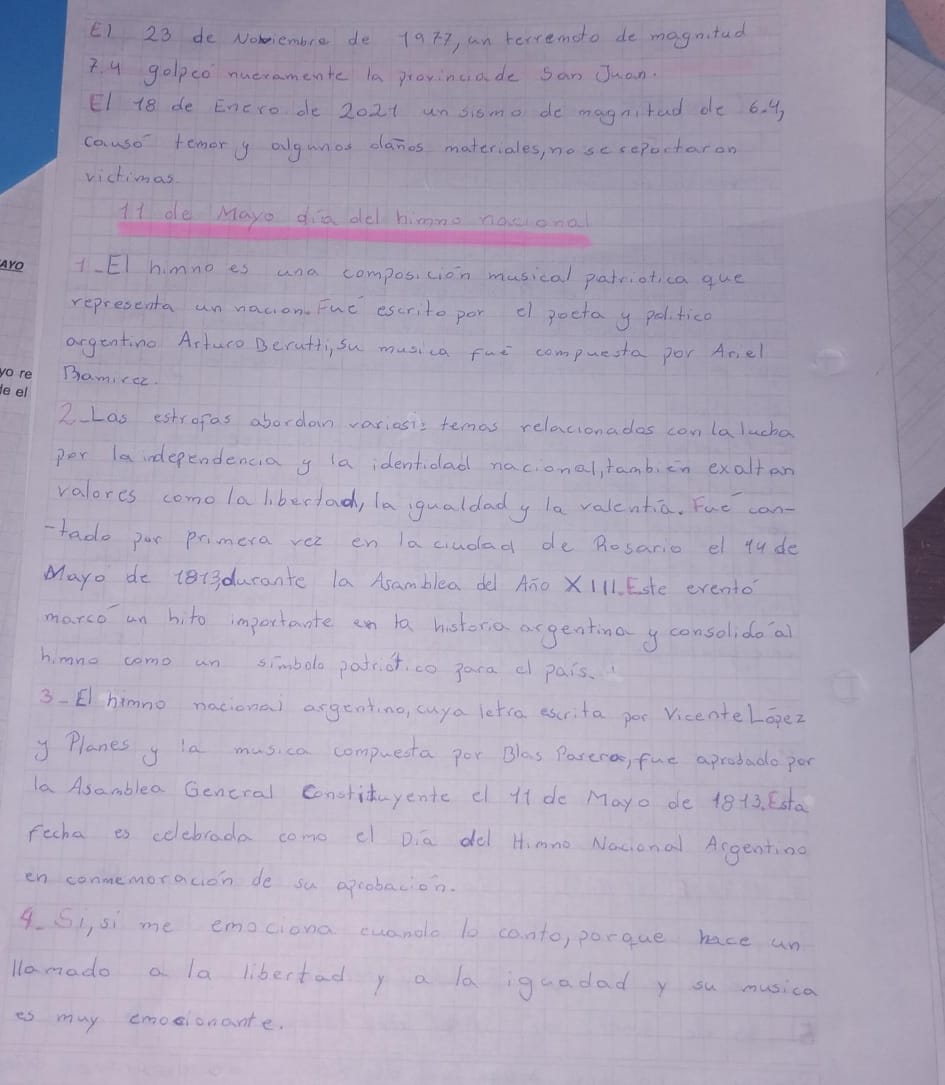 El 23 de Noviembre de 1977, un terremoto de magnitud
7.4 golpeo nuevamente la provincia de San Juan.
El 18 de Enero de 2021 un sismo de magnitud de 6.4,
causo temor y algunos daños materiales, no se reportaron
victimas.
11 de Mayo día del himno nacional
AYO
1-El himno es una composición musical patriotica que
representa un nacion. Fué escrito por el poeta y politico
argentino Arturo Berutti, su musica fué compuesta por Ariel
yo re
Ramirez.
de el
2-Las estrofas abordan varios temas relacionados con la lucha
por la independencia y la identidad nacional, tambien exaltan
valores como la libertad, la igualdad y la valentía. Fué can-
-tado por primera vez en la ciudad de Rosario el 14 de
Mayo de 1813 durante la Asamblea del Año XIII. Este evento
marcó un hito importante en la historia argentina y consolido al
himno como un simbolo patriotico para el país.
3-El himno nacional argentino, cuya letra escrita por Vicente López
y Planes y la musica compuesta por Blas Parera, fue aprobado por
la Asamblea General Constituyente el 11 de Mayo de 1813. Esta
fecha es celebrada como el Día del Himno Nacional Argentino
en conmemoración de su aprobación.
4-Si, si me emociona cuando lo canto, porque hace un
llamado a la libertad y a la iguadad y su musica
es muy emocionante.